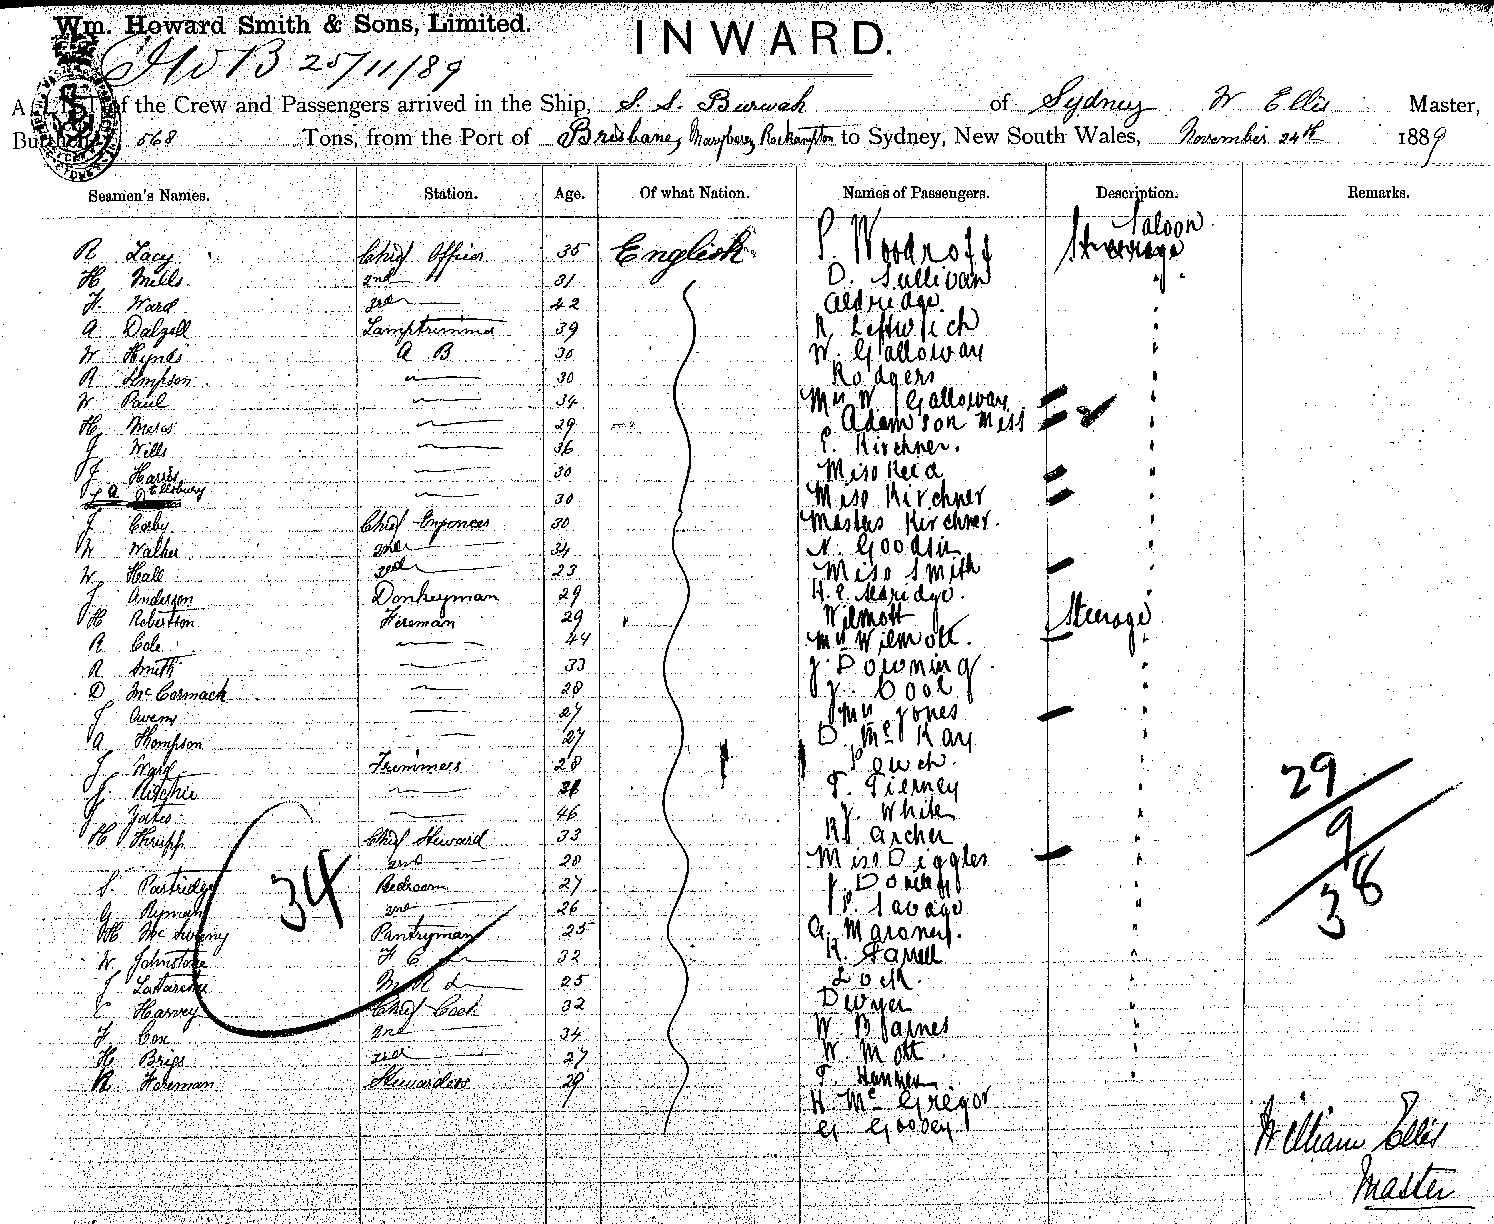 Wm. Howard Smith & Sons, Limited.
INWARD.
25/11/89
of the Crew and Passengers arrived in the Ship, S. S. Burwah of Sydney W Ellis Master,
568 Tons, from the Port of Brisbane, Rockhampton to Sydney, New South Wales, November 24th 1889
Seamen's Names. Station. Age. Of what Nation. Names of Passengers. Description. Remarks.
Saloon
R Lacy Chief Officer 35 English P Woodroff Steerage
H Mills 2nd " 31 D. Sullivan "
H. Ward 3rd — 42 Aldridge "
A Dalzell Lamptrimmer 39 R Leftwich "
W Hynds A B 30 W. Galloway "
R Simpson — 30 Rodgers "
W Paul — 34 Mrs W Galloway "
H — 29 Adamson Miss "
J Wills — 36 E. Kirchner. "
J Harris — 30 Miss Reid "
A Ellsbury — 30 Miss Kirchner "
J. Corby Chief 30 Masters Kirchner. "
W Walker 2nd 34 N. "
W Hall 3rd 23 Miss Smith "
J Anderson Donkeyman 29 Aldridge. "
H Robertson Fireman 29 Wilmott Steerage
R Cole — 44 Mrs Wilmott. "
R Smith — 33 J. Downing "
D McCormack — 28 J. Cook "
J Owens — 27 Mrs Jones "
A Thompson — 27 D McKay "
J Ward Trimmers 28 "
J. Ritchie — T. Tierney " 29
J Yates — 46 J. White "
H Chief Steward 33 R Archer " 9
2nd 28 Miss Diggles "
S. Partridge Bedroom 27 J " 38
G Ryman 2nd 26 P. Savage "
34
H McSweeny Pantryman 25 "
W Johnstone 32 R. Farrell "
J 25 Lock. "
C Harvey Chief Cook 32 Dwyer "
F Cox 2nd 34 W Barnes "
H Briggs 3rd 27 W Mott "
R Foreman Stewardess 29 T. "
H McGregor
G Goobey
William Ellis
Master